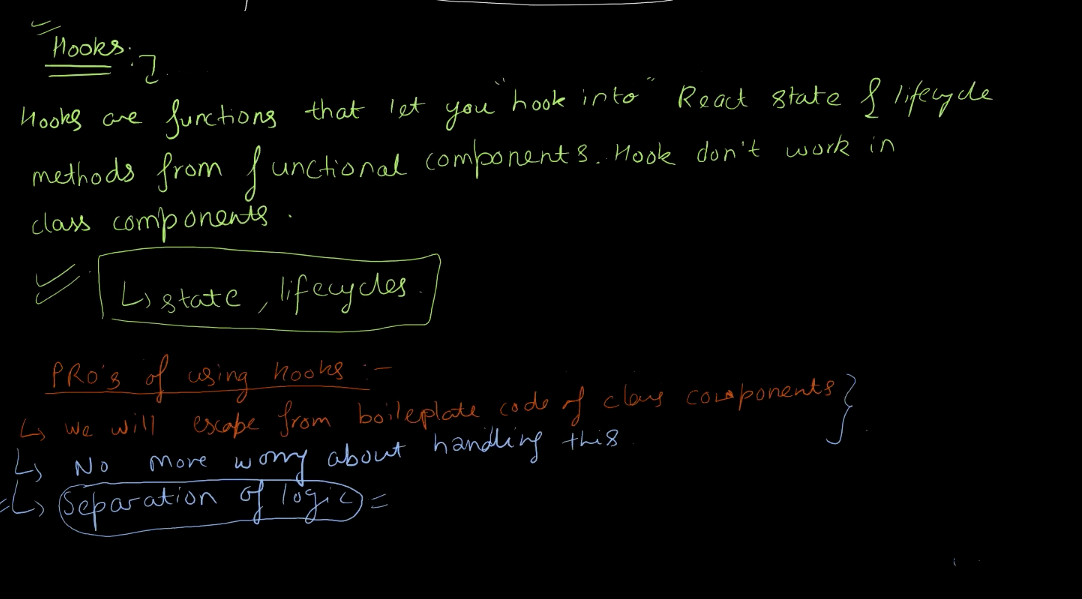 Hooks :-
Hooks are functions that let you "hook into" React state & lifecycle
methods from functional components. Hook don't work in
class components.
↳ state, lifecycles.
PRO's of using hooks :-
↳ we will escape from boileplate code of class components
↳ No more worry about handling this
↳ Separation of logic =